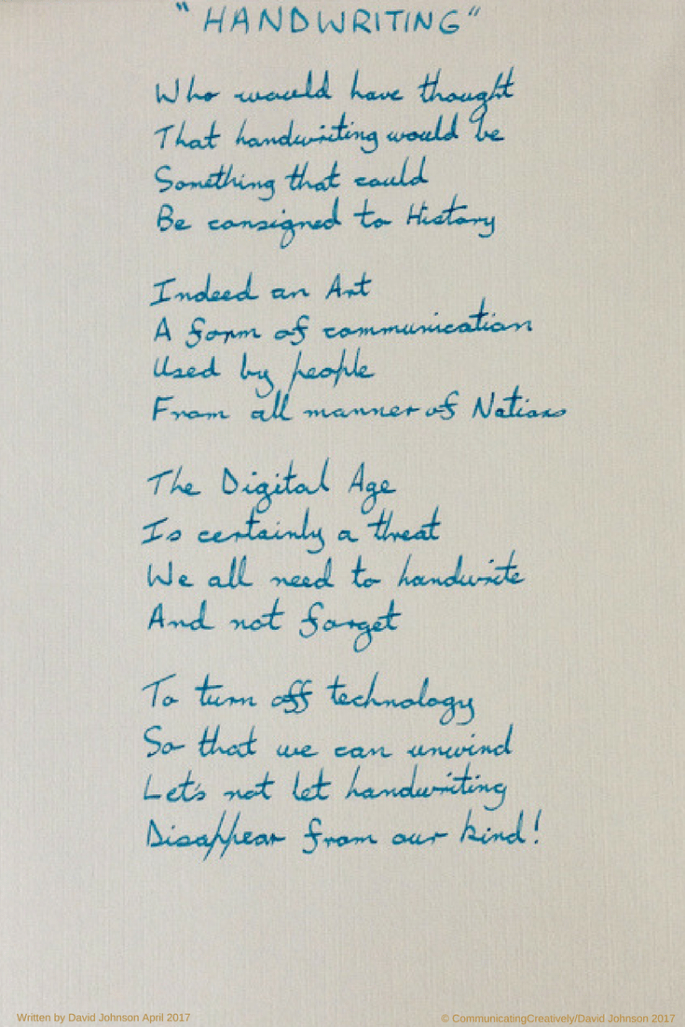 "HANDWRITING"
Who would have thought
That handwriting would be
Something that could
Be consigned to History
Indeed an Art
A form of communication
Used by people
From all manner of Nations
The Digital Age
Is certainly a threat
We all need to handwrite
And not forget
To turn off technology
So that we can unwind
Let's not let handwriting
Disappear from our kind!
Written by David Johnson April 2017
© CommunicatingCreatively/David Johnson 2017